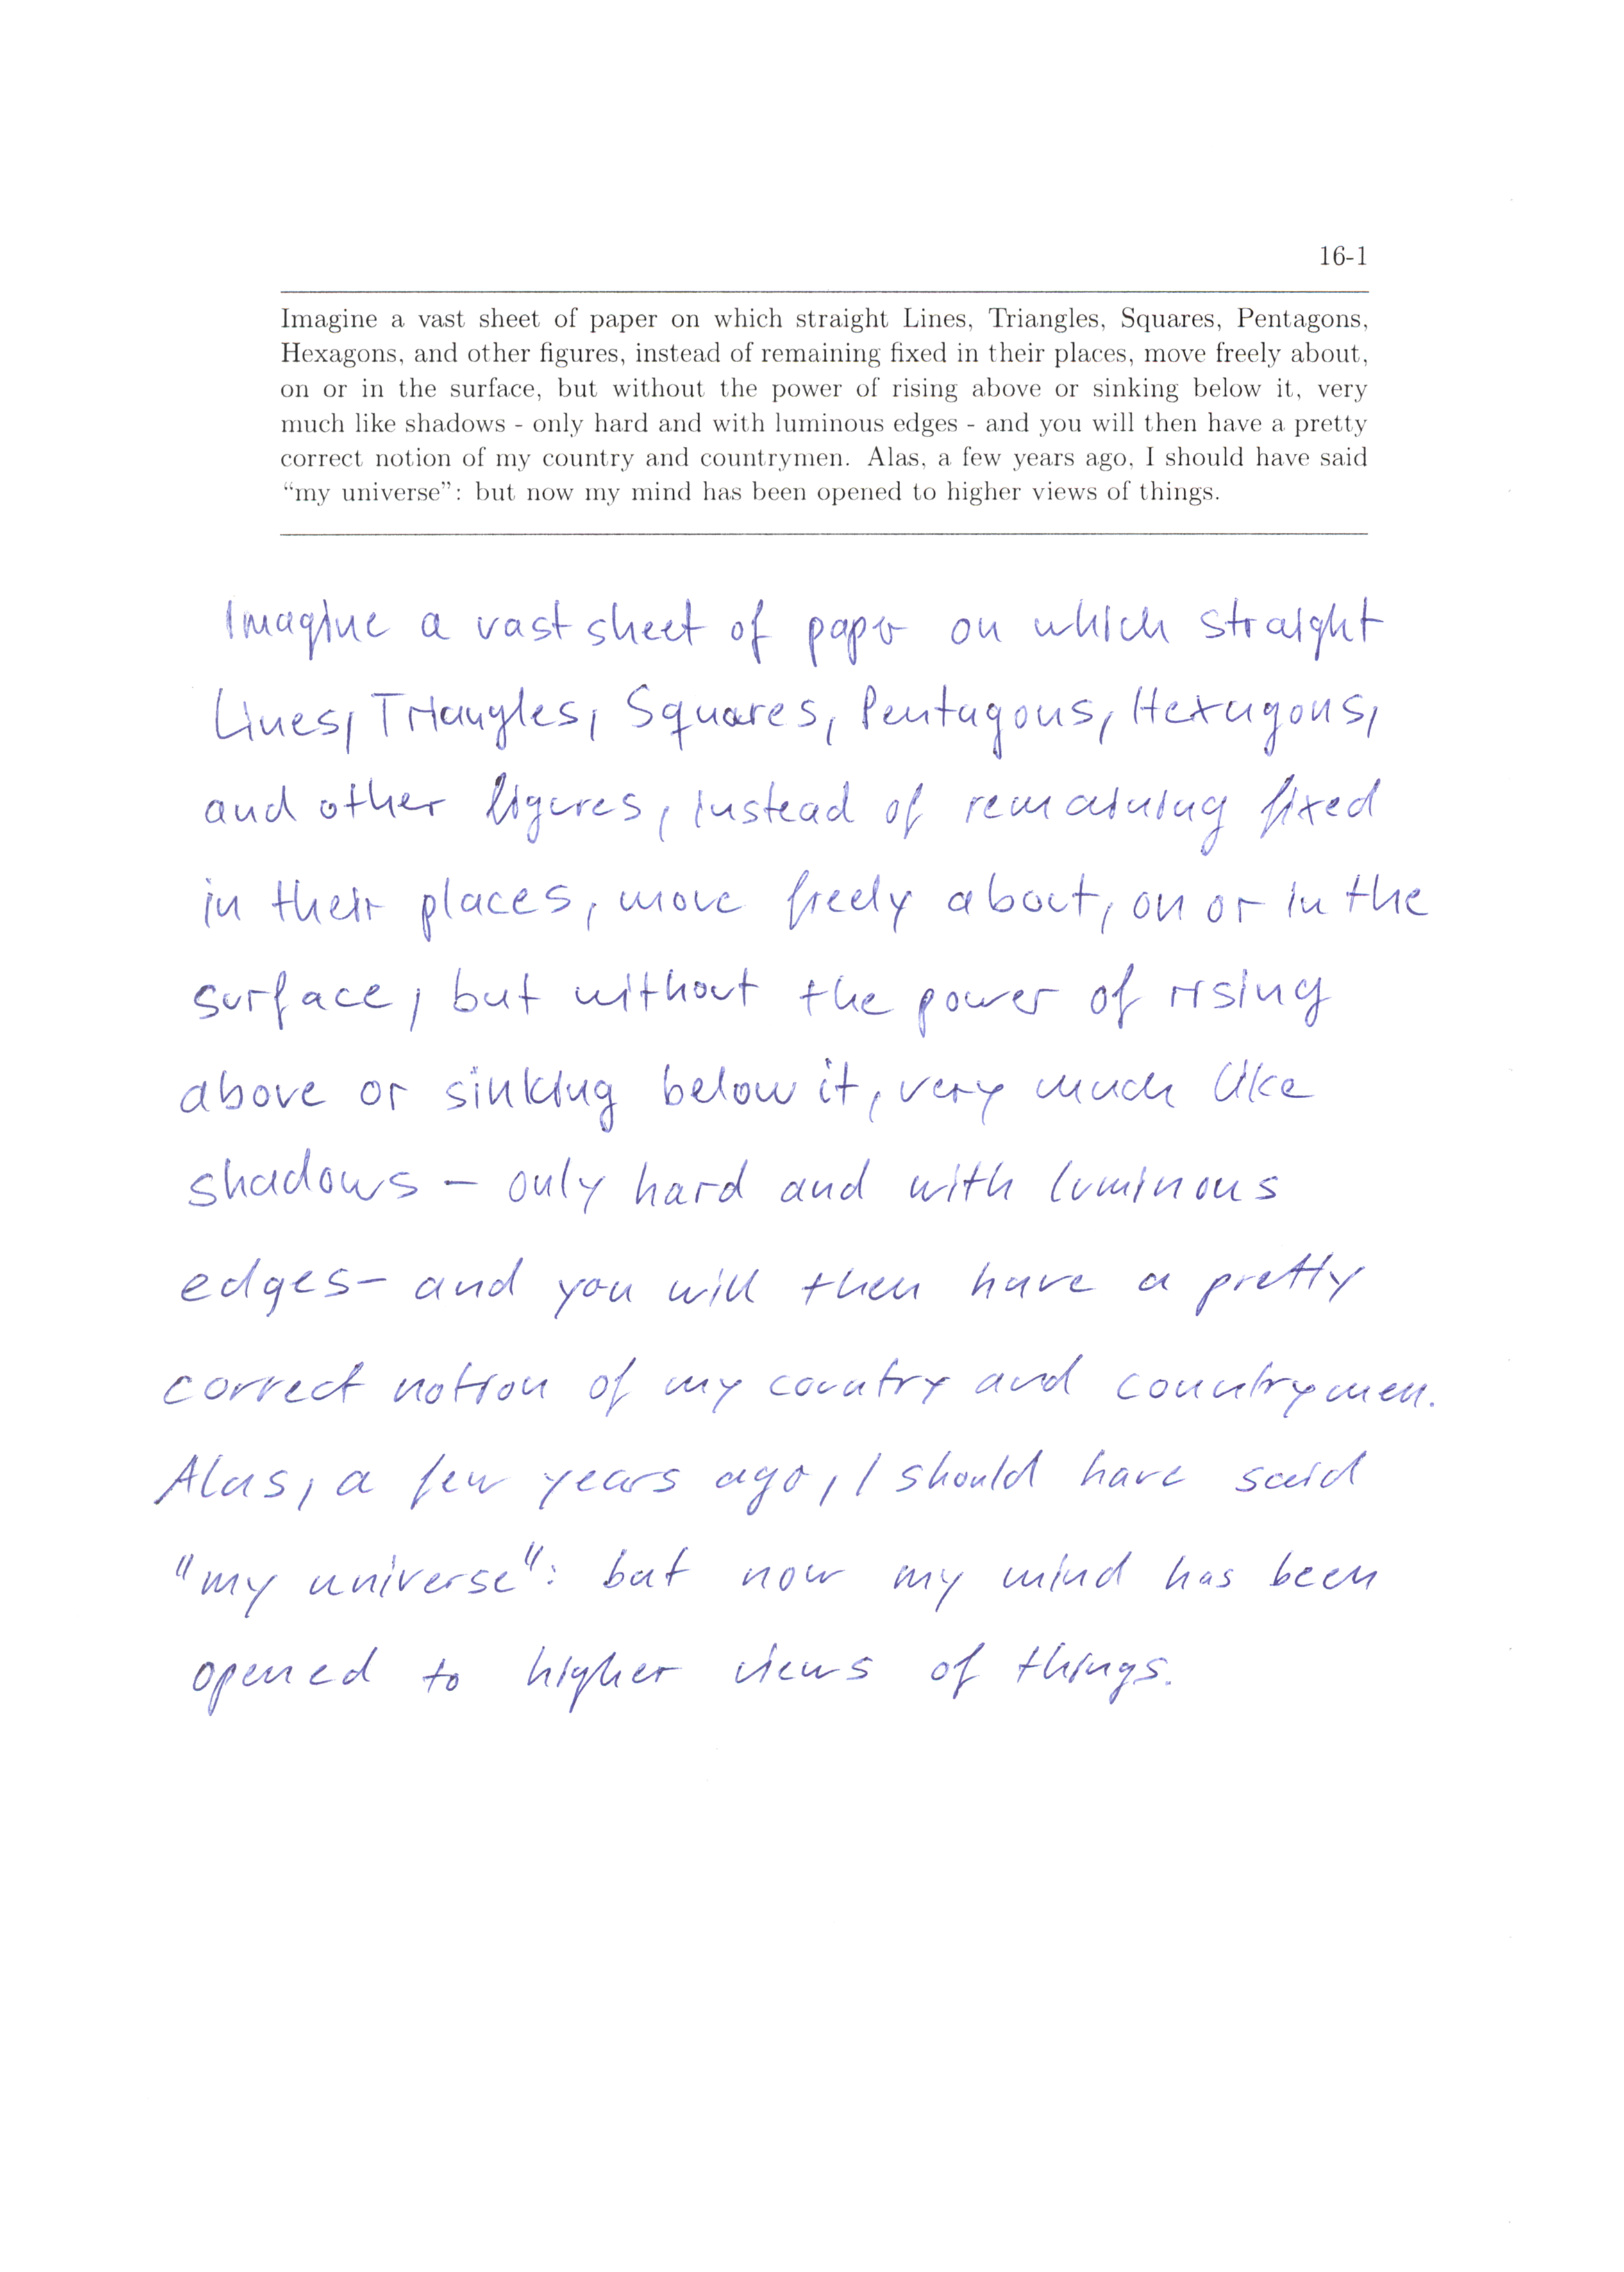 16-1
Imagine a vast sheet of paper on which straight Lines, Triangles, Squares, Pentagons,
Hexagons, and other figures, instead of remaining fixed in their places, move freely about,
on or in the surface, but without the power of rising above or sinking below it, very
much like shadows - only hard and with luminous edges - and you will then have a pretty
correct notion of my country and countrymen. Alas, a few years ago, I should have said
“my universe”: but now my mind has been opened to higher views of things.
Imagine a vast sheet of paper on which straight
Lines, Triangles, Squares, Pentagons, Hexagons,
and other figures, instead of remaining fixed
in their places, move freely about, on or in the
surface, but without the power of rising
above or sinking below it, very much like
shadows – only hard and with luminous
edges – and you will then have a pretty
correct notion of my country and countrymen.
Alas, a few years ago, I should have said
"my universe": but now my mind has been
opened to higher views of things.